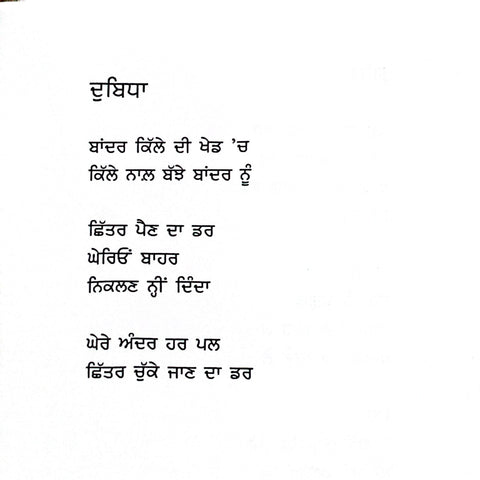 ਦੁਬਿਧਾ
ਬਾਂਦਰ ਕਿੱਲੇ ਦੀ ਖੇਡ 'ਚ
ਕਿੱਲੇ ਨਾਲ਼ ਬੱਝੇ ਬਾਂਦਰ ਨੂੰ
ਛਿੱਤਰ ਪੈਣ ਦਾ ਡਰ
ਘੇਰਿਓਂ ਬਾਹਰ
ਨਿਕਲਣ ਨ੍ਹੀਂ ਦਿੰਦਾ
ਘੇਰੇ ਅੰਦਰ ਹਰ ਪਲ
ਛਿੱਤਰ ਚੁੱਕੇ ਜਾਣ ਦਾ ਡਰ